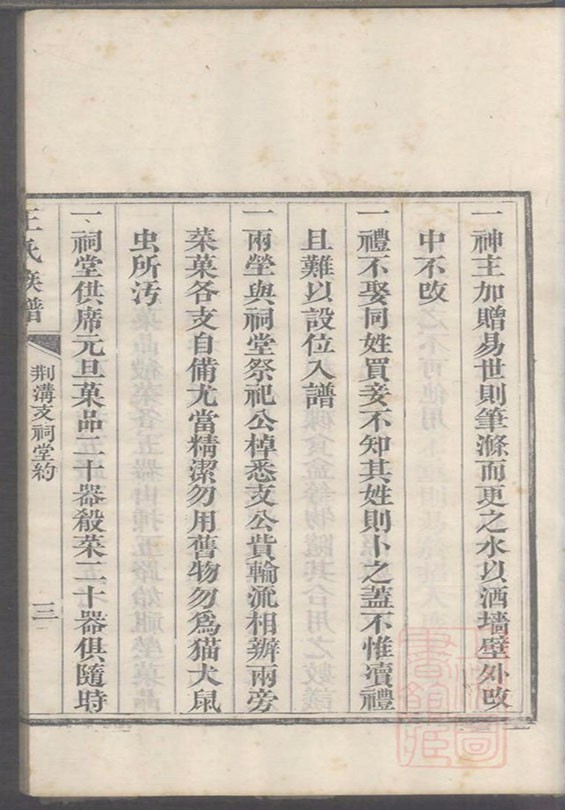 一神主加贈易世則筆滌而更之水以洒墻壁外改
中不改
一禮不娶同姓買妾不知其姓則卜之蓋不惟瀆禮
且難以設位入譜
一兩塋與祠堂祭祀公棹悉支公貲輪流相辦兩旁
菜菓各支自備尤當精潔勿用舊物勿爲猫犬鼠
虫所汚
一祠堂供席元旦菓品二十器殽菜二十器俱隨時
王氏族譜
荆溝支祠堂約
三